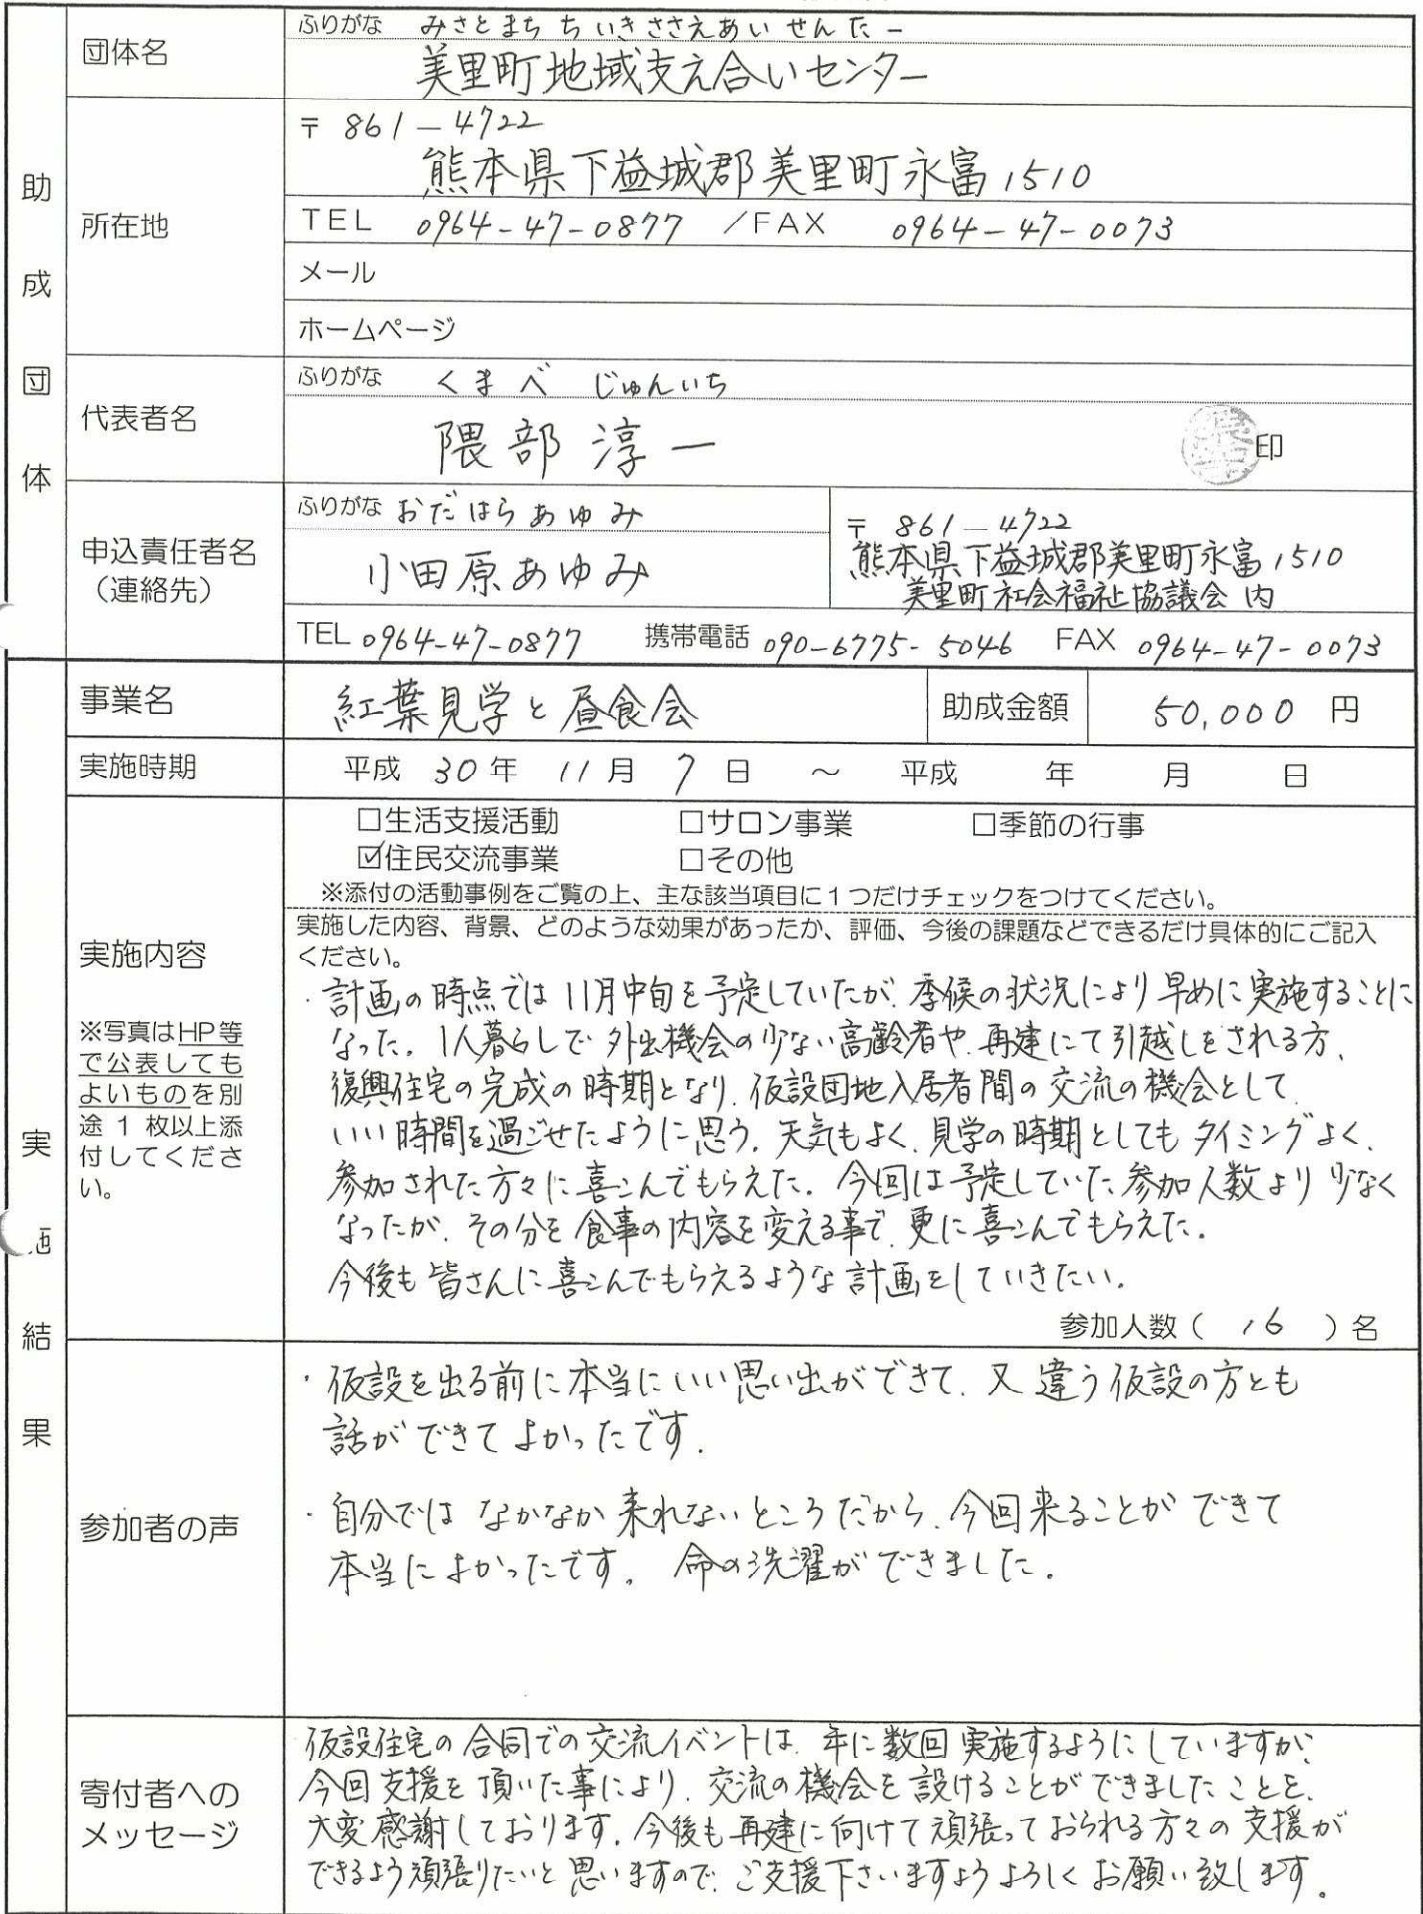 助成団体
団体名
ふりがな みさとまち ちいきささえあい せんたー
美里町地域支え合いセンター
所在地
〒 861-4722
熊本県下益城郡美里町永富1510
TEL 0964-47-0877 /FAX 0964-47-0073
メール
ホームページ
代表者名
ふりがな くまべ じゅんいち
隈部 淳一
印
申込責任者名
（連絡先）
ふりがな おだはらあゆみ
小田原あゆみ
〒 861-4722
熊本県下益城郡美里町永富1510
美里町社会福祉協議会 内
TEL 0964-47-0877 携帯電話 090-6775-5046 FAX 0964-47-0073
実施結果
事業名
紅葉見学と昼食会
助成金額 50,000 円
実施時期
平成 30年 11月 7日 ～ 平成 年 月 日
実施内容
※写真はHP等
で公表しても
よいものを別
途1枚以上添
付してくださ
い。
□生活支援活動 □サロン事業 □季節の行事
☑住民交流事業 □その他
※添付の活動事例をご覧の上、主な該当項目に1つだけチェックをつけてください。
実施した内容、背景、どのような効果があったか、評価、今後の課題などできるだけ具体的にご記入
ください。
・計画の時点では11月中旬を予定していたが、季候の状況により早めに実施することに
なった。1人暮らしで外出機会の少ない高齢者や、再建にて引越しをされる方、
復興住宅の完成の時期となり、仮設団地入居者間の交流の機会として、
いい時間を過ごせたように思う。天気もよく、見学の時期としてもタイミングよく、
参加された方々に喜こんでもらえた。今回は予定していた参加人数より少なく
なったが、その分を食事の内容を変える事で、更に喜こんでもらえた。
今後も皆さんに喜こんでもらえるような計画をしていきたい。
参加人数（ 16 ）名
参加者の声
・仮設を出る前に本当にいい思い出ができて、又違う仮設の方とも
話ができてよかったです。
・自分ではなかなか来れないところだから、今回来ることができて
本当によかったです。命の洗濯ができました。
寄付者への
メッセージ
仮設住宅の合同での交流イベントは、年に数回実施するようにしていますが、
今回支援を頂いた事により、交流の機会を設けることができましたことを、
大変感謝しております。今後も再建に向けて頑張っておられる方々の支援が
できるよう頑張りたいと思いますので、ご支援下さいますようよろしくお願い致します。